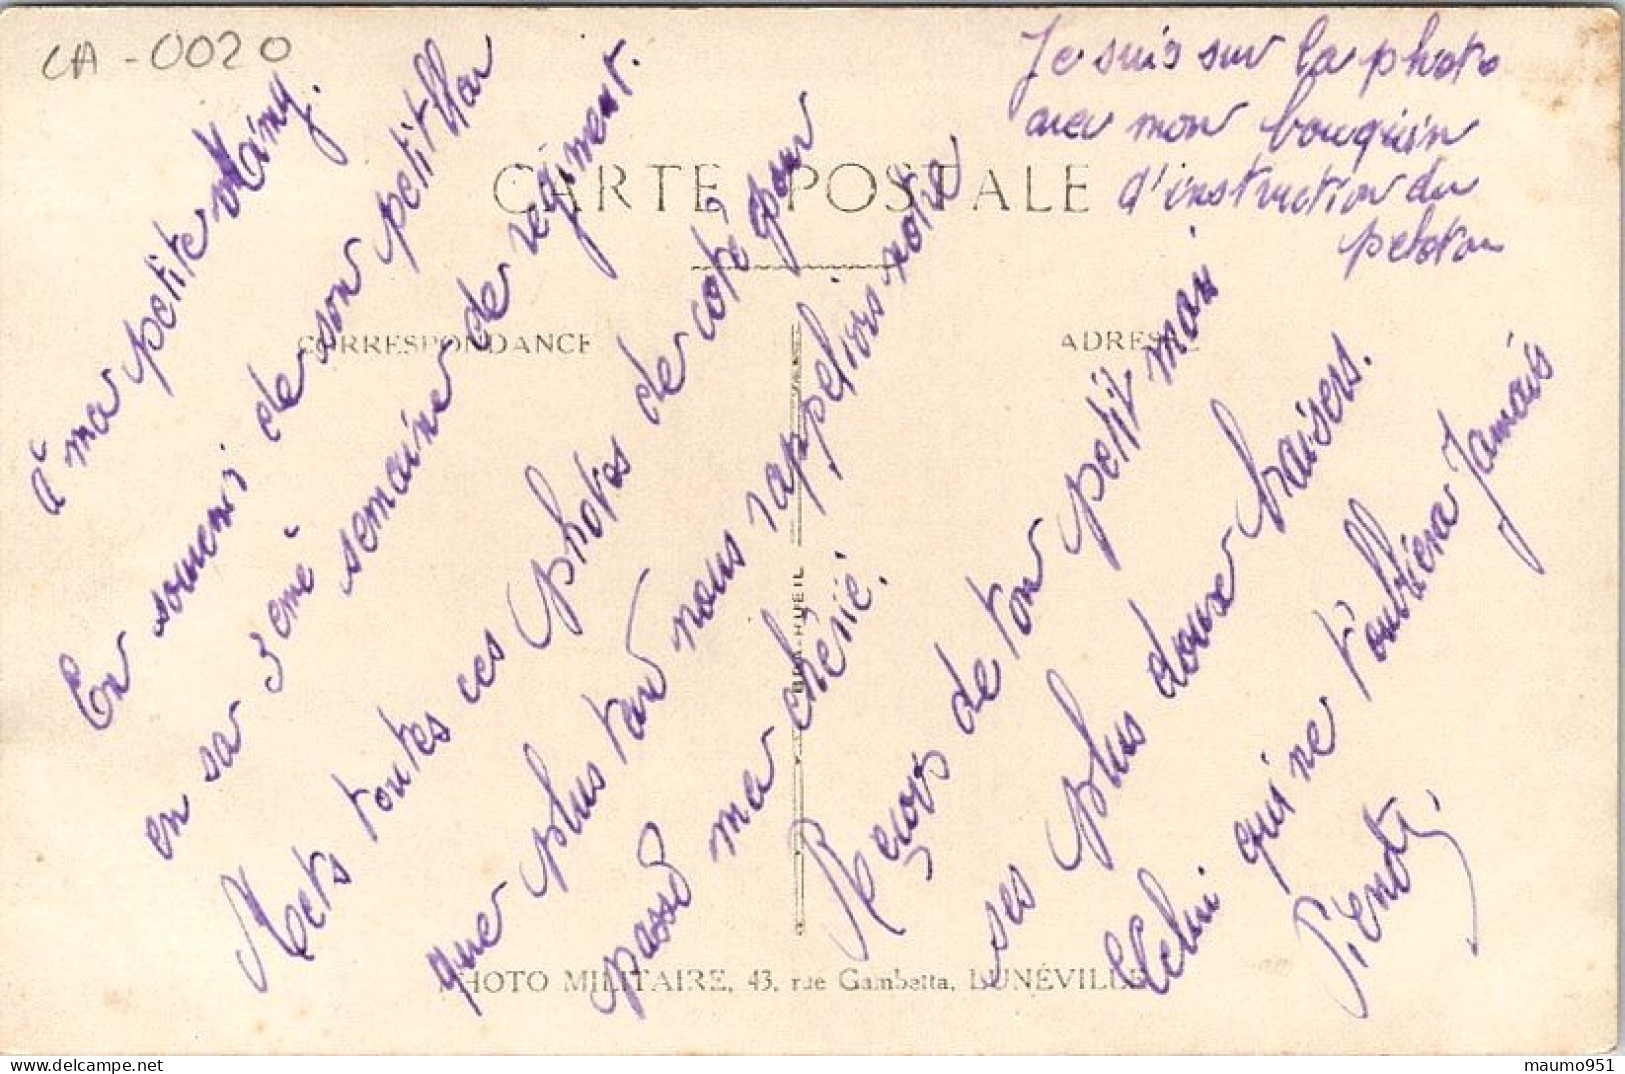 CA - 0020
Je suis sur la photo
avec mon bouquin
d'instruction du
peloton
CARTE POSTALE
CORRESPONDANCE
ADRESSE
à ma petite Mimy.
En souvenir de son petit
en sa 3ème semaine de régiment.
Mets toutes ces photos de coté pour
que plus tard nous rappelions notre
passé ma chérie.
Reçois de ton petit mari
ses plus doux baisers.
Celui qui ne t'oubliera Jamais
PHOTO MILITAIRE, 43, rue Gambetta, LUNÉVILLE
maumo951